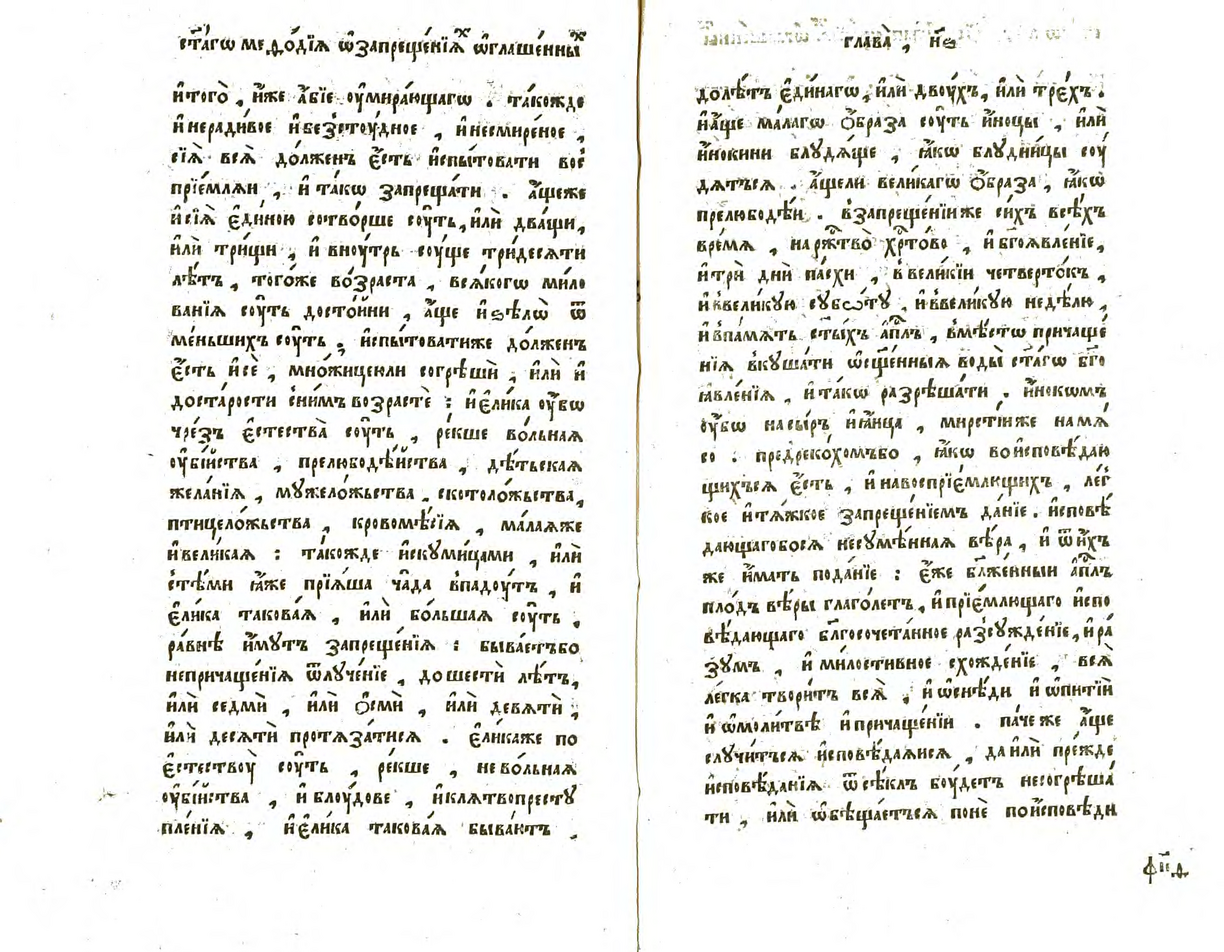 ст҃а́гѡ меѳо́дїѧ ѡ҆запреще́нїѧⷯ ѡ҆глаше́нныⷯ
и҆того̀ , и҆́же а҆́бїе ᲂу҆мира́ющагѡ . та́кожде
и҆неради́вое и҆безстоу́дное , и҆несмире́ное ,
сїѧ̑ всѧ̑ до́лженъ є҆́сть и҆спы́товати вꙋ̀
прїе́млѧи , и҆ та́кѡ запреща́ти . а҆́щеже
и҆ сїѧ̑ є҆ди́ною сотво́рше соу́ть , и҆лѝ два́щи ,
и҆лѝ три́щи , и҆ вноу́трь соу́ще три́десѧти
лѣ́тъ , того́же во́зраста , всѧ́когѡ мило
ванїѧ соу́ть досто́йни , а҆́ще и҆ ѕѣлѡ̀ ѿ
ме́ньшихъ соу́ть . и҆спы́товатиже до́лженъ
є҆́сть и҆сѐ , мно́жицеюли согрѣшѝ , и҆лѝ и҆
доста́рости си́мъ возрастѐ : и҆ є҆ли́ка ᲂу҆́бѡ
чре́зъ є҆стества̀ соу́ть , ре́кше во́льнаѧ
ᲂу҆бі́йства , прелюбодѣ́йства , дѣ́тьскаѧ
жела́нїѧ , мꙋжело́жьства . скотоло́жьства ,
птицело́жьства , кровомѣ́сїѧ , ма́лаѧже
и҆вели́каѧ : та́кожде и҆скꙋми́цами , и҆лѝ
сте́ми ꙗ҆́же прїѧ́ша ча̑да впадоу́тъ , и҆
є҆ли́ка такова́ѧ , и҆лѝ бо́льшаѧ соу́ть .
ра́внѣ и҆́мꙋтъ запреще́нїѧ : быва́етъбо
непричаще́нїѧ ѿлꙋче́нїе , до шестѝ лѣ́тъ ,
и҆лѝ седмѝ , и҆лѝ ѻ҆смѝ , и҆лѝ девѧтѝ ,
и҆лѝ десѧтѝ протѧза́тисѧ . є҆ли́каже по
є҆стествоу̀ соу́ть , ре́кше , нево́льнаѧ
ᲂу҆бі́йства , и҆ блоу́дове , и҆клѧтвопрестꙋ
пле́нїѧ , и҆ є҆ли́ка такова́ѧ быва́ютъ .
глава̀ , н҃ѕ
долѣ́тъ є҆ди́нагѡ , и҆лѝ двоу́хъ , и҆лѝ тре́хъ .
и҆а҆́ще ма́лагѡ ѻ҆́браза соу́ть и҆́ноцы , и҆лѝ
и҆́нокини блꙋдѧ́ще , ꙗ҆́кѡ блꙋдни́цы соу́
дѧтъсѧ . а҆́щели вели́кагѡ ѻ҆́браза , ꙗ҆́кѡ
прелюбодѣ́и . взапреще́нїиже си́хъ всѣ́хъ
вре́мѧ , на рж҃тво̀ хр҃то́во , и҆ бг҃оѧвле́нїе ,
и҆ трѝ дни̑ па́схи , в вели́кїи четверто́къ ,
и҆ ввели́кꙋю сꙋбѡ́тꙋ , и҆ ввели́кꙋю недѣ́лю ,
и҆ впа́мѧть ст҃ы́хъ а҆п҃лъ , вмѣ́стѡ причаще́
нїѧ вкꙋша́ти ѡ҆сщ҃е́нныѧ воды̀ ст҃а́гѡ бг҃о
ꙗ҆вле́нїѧ , и҆ та́кѡ разрѣша́ти . и҆́нокѡмъ
ᲂу҆́бѡ насы́ръ и҆ꙗ҆́ица , мирсті́иже намѧ́
со . предреко́хомъбо , ꙗ҆́кѡ во и҆сповѣ́даю
щихъсѧ є҆́сть , и҆ навоспрїе́млющихъ , ле́г
кое и҆ тѧ́жкое запреще́нїемъ да́нїе . и҆сповѣ́
дающагобосѧ несꙋмѣ́ннаѧ вѣ́ра , и҆ ѿ ни́хъ
же и҆́мать пода́нїе : є҆́же бл҃же́нныи а҆п҃лъ
пло́дъ вѣ́ры глаго́летъ , и҆ прїе́млющаго и҆спо
вѣ́дающаго бл҃госочета́нное разсꙋжде́нїе , и҆ ра́
зꙋмъ , и҆ ми́лостивное схожде́нїе , всѧ̑
легка̀ твори́тъ всѧ̑ , и҆ ѡ҆снѣ́ди и҆ ѡ҆питїѝ
и҆ ѡ҆моли́твѣ и҆ причаще́нїи . па́че же а҆́ще
слꙋчи́тъсѧ и҆сповѣ́даѧисѧ , да и҆лѝ пре́жде
и҆сповѣ́данїѧ ѿсѣ́клъ боу́детъ несогрѣша́
ти , и҆лѝ ѡ҆бѣща́етъсѧ понѐ по и҆сповѣ́ди
ф҃п҃д